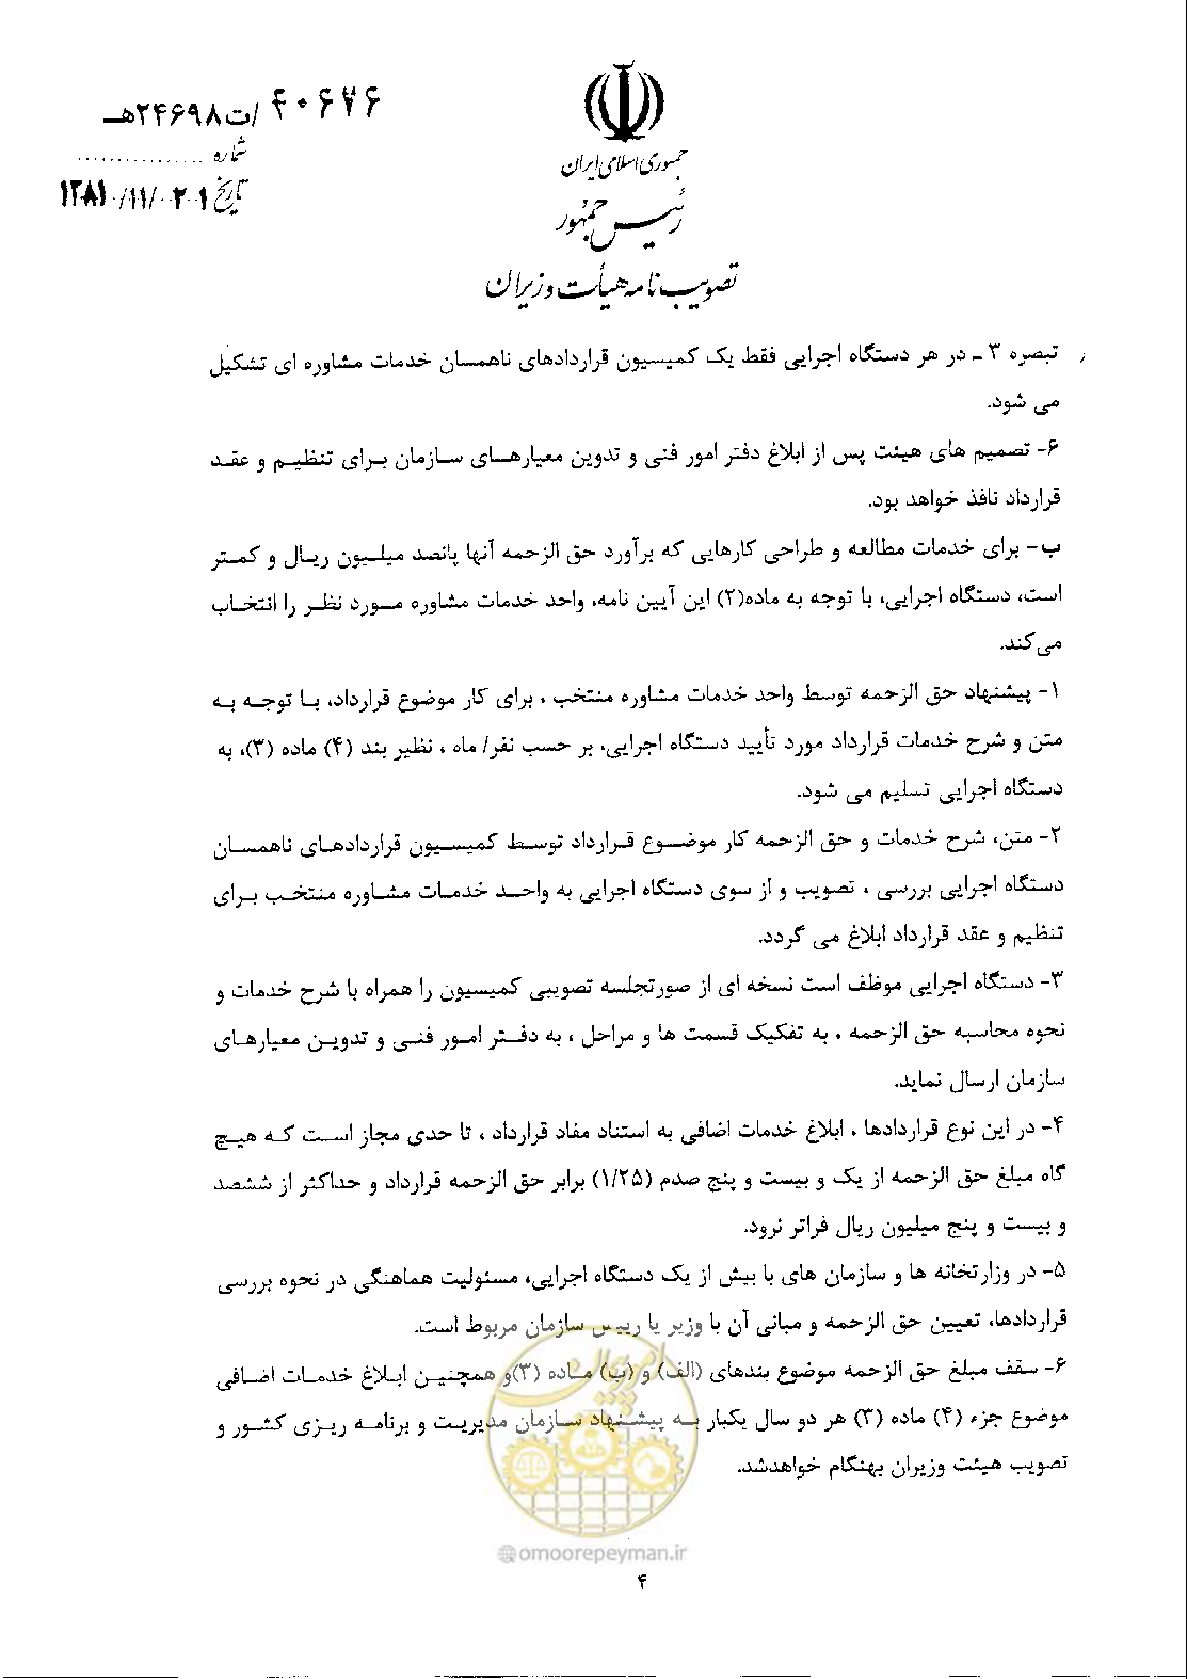 ۴۰۶۷۶ /ت۲۴۶۹۸هـ
شماره ....................
تاریخ
جمهوری اسلامی ایران
رئیس جمهور
تصویب نامه هیأت وزیران
تبصره ۳ ـ در هر دستگاه اجرایی فقط یک کمیسیون قراردادهای ناهمسان خدمات مشاوره ای تشکیل
می شود.
۶- تصمیم های هیئت پس از ابلاغ دفتر امور فنی و تدوین معیارهای سازمان برای تنظیم و عقد
قرارداد نافذ خواهد بود.
ب- برای خدمات مطالعه و طراحی کارهایی که برآورد حق الزحمه آنها پانصد میلیون ریال و کمتر
است، دستگاه اجرایی، با توجه به ماده(۲) این آیین نامه، واحد خدمات مشاوره مورد نظر را انتخاب
می‌کند.
۱- پیشنهاد حق الزحمه توسط واحد خدمات مشاوره منتخب ، برای کار موضوع قرارداد، با توجه به
متن و شرح خدمات قرارداد مورد تأیید دستگاه اجرایی، بر حسب نفر/ ماه ، نظیر بند (۴) ماده (۳)، به
دستگاه اجرایی تسلیم می شود.
۲- متن، شرح خدمات و حق الزحمه کار موضوع قرارداد توسط کمیسیون قراردادهای ناهمسان
دستگاه اجرایی بررسی ، تصویب و از سوی دستگاه اجرایی به واحد خدمات مشاوره منتخب برای
تنظیم و عقد قرارداد ابلاغ می گردد.
۳- دستگاه اجرایی موظف است نسخه ای از صورتجلسه تصویبی کمیسیون را همراه با شرح خدمات و
نحوه محاسبه حق الزحمه ، به تفکیک قسمت ها و مراحل ، به دفتر امور فنی و تدوین معیارهای
سازمان ارسال نماید.
۴- در این نوع قراردادها ، ابلاغ خدمات اضافی به استناد مفاد قرارداد ، تا حدی مجاز است که هیچ
گاه مبلغ حق الزحمه از یک و بیست و پنج صدم (۱/۲۵) برابر حق الزحمه قرارداد و حداکثر از ششصد
و بیست و پنج میلیون ریال فراتر نرود.
۵- در وزارتخانه ها و سازمان های با بیش از یک دستگاه اجرایی، مسئولیت هماهنگی در نحوه بررسی
قراردادها، تعیین حق الزحمه و مبانی آن با وزیر یا رییس سازمان مربوط است.
۶- سقف مبلغ حق الزحمه موضوع بندهای (الف) و (ب) ماده (۳)و همچنین ابلاغ خدمات اضافی
موضوع جزء (۴) ماده (۳) هر دو سال یکبار به پیشنهاد سازمان مدیریت و برنامه ریزی کشور و
تصویب هیئت وزیران بهنگام خواهدشد.
امور پیمان
@omoorepeyman.ir
۴